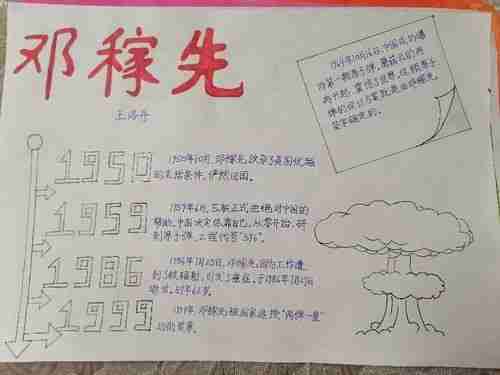 邓稼先
王洛丹
1964年10月16日,中国成功爆
炸第一颗原子弹,蘑菇云的两
弹的设计方案就是由邓稼先
签字确定的。
1950
1950年10月,邓稼先放弃了美国优越
的生活条件,伊然回国。
1959
1959年6月,苏联正式拒绝对中国的
帮助,中国决定依靠自己,从零开始,研
制原子弹,工程代号"596"。
1986
1986年7月29日,邓稼先因为工作遭
到了核辐射,引发了癌症,于1986年7月29日
逝世,时年62岁。
1999
1999年,邓稼先被国家追授"两弹一星"
功勋奖章。